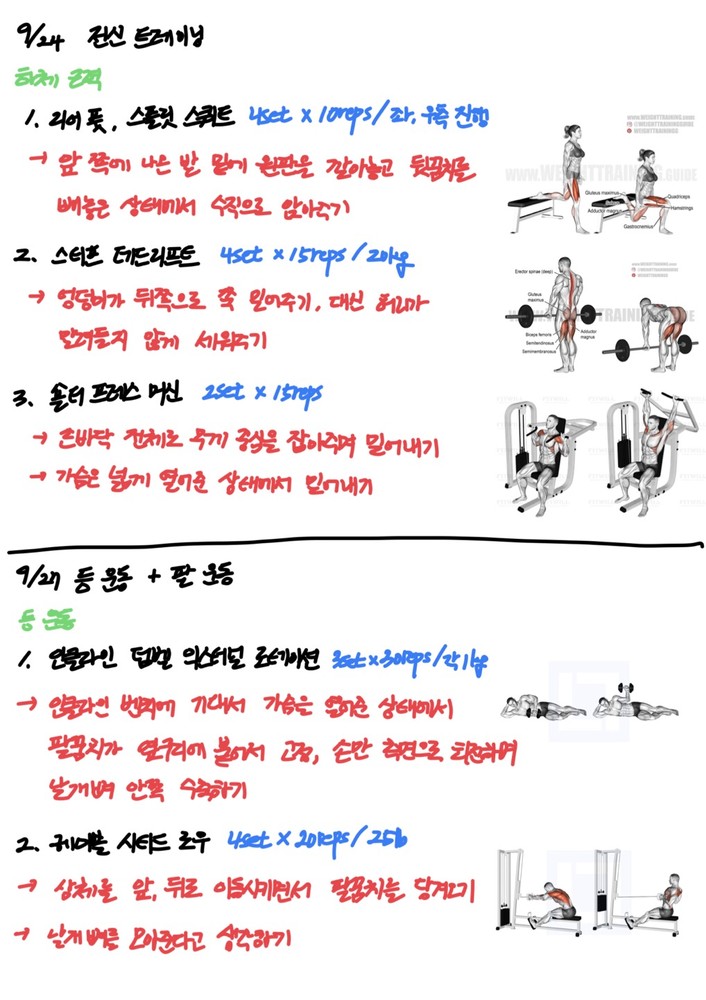 9/24 전신 트레이닝
하체 근력
1. 리어 풋, 스플릿 스쿼트 4set × 10reps / 좌, 우측 진행
→ 앞 쪽에 나온 발 밑에 원판을 깔아놓고 뒷꿈치를
빼놓은 상태에서 수직으로 앉아주기
WWW.WEIGHTTRAINING.GUIDE
@WEIGHTTRAININGGUIDE
WEIGHTTRAININGS
WWW.WEIGHTTRAINING.GUIDE
Gluteus maximus
Quadriceps
Adductor magnus
Hamstrings
Gastrocnemius
2. 스티프 데드리프트 4set × 15reps / 20kg
→ 엉덩이가 뒤쪽으로 쭉 밀어주기, 대신 허리가
말려들지 않게 세워주기
Erector spinae (deep)
Gluteus maximus
Biceps femoris
Semitendinosus
Semimembranosus
Adductor magnus
3. 숄더 프레스 머신 2set × 15reps
→ 손바닥 전체로 무게 중심을 잡아주며 밀어내기
→ 가슴은 넓게 열어준 상태에서 밀어내기
9/27 등 운동 + 팔 운동
등 운동
1. 인클라인 덤벨 익스터널 로테이션 3set × 30reps / 각 1kg
→ 인클라인 벤치에 기대서 가슴은 열어준 상태에서
팔꿈치가 옆구리에 붙어서 고정, 손만 측면으로 회전하며
날개뼈 안쪽 수축하기
2. 케이블 시티드 로우 4set × 20reps / 25lb
→ 상체를 앞, 뒤로 이동시키면서 팔꿈치를 당겨오기
→ 날개뼈를 모아준다고 생각하기